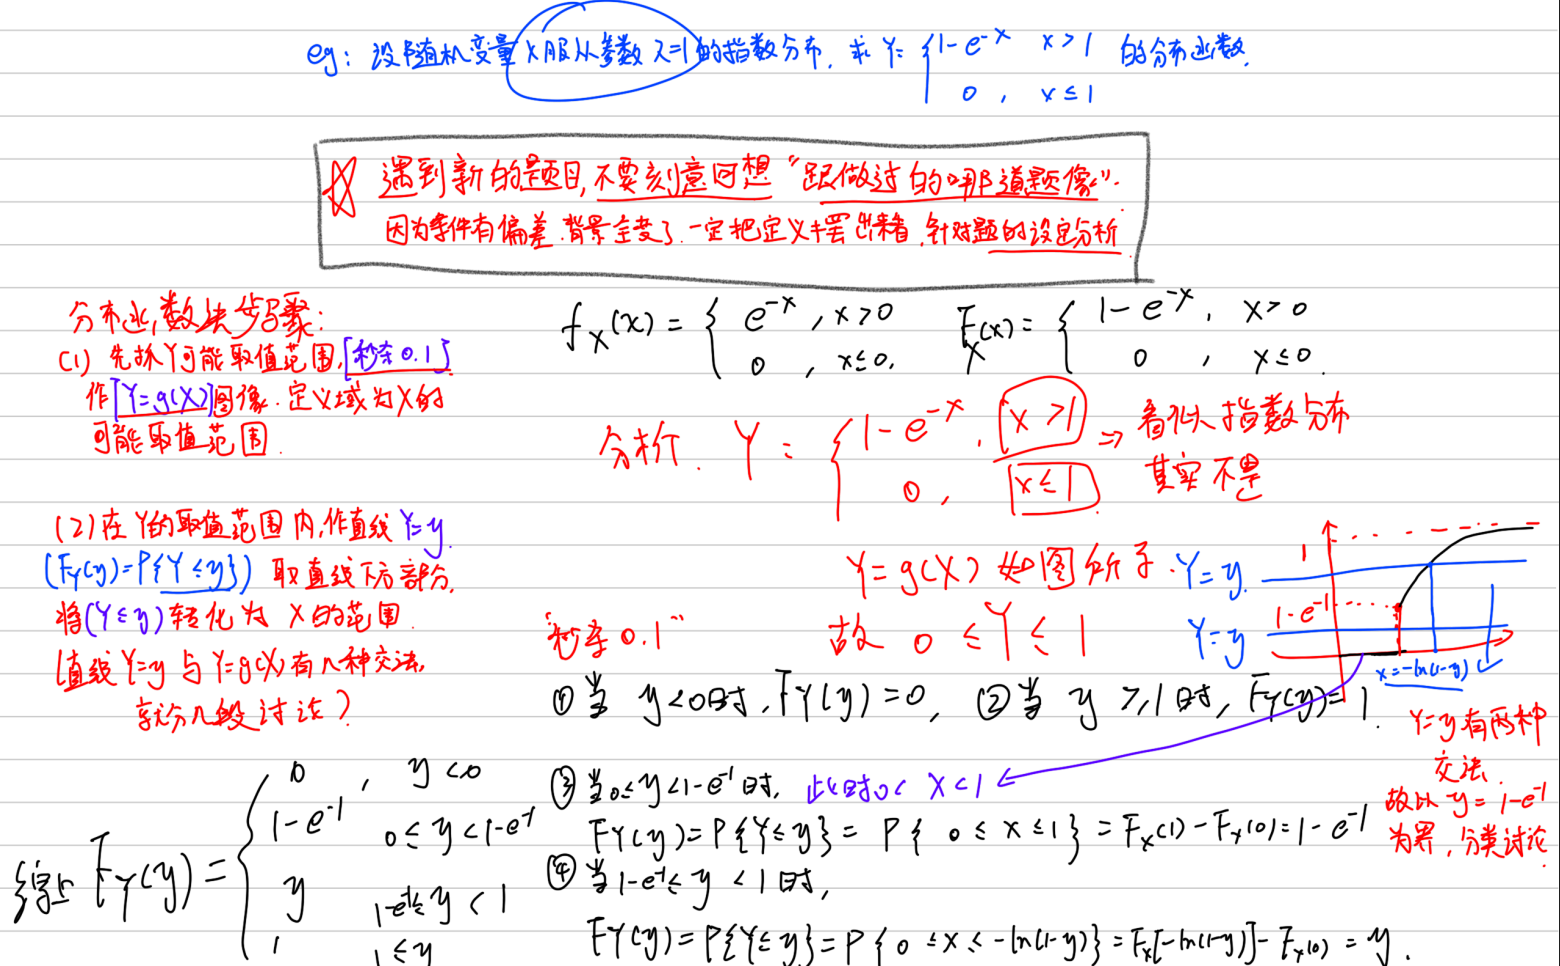 eg: 设随机变量X服从参数λ=1的指数分布. 求 Y= { 1-e^-x x>1 的分布函数.
0 , x≤1
☆ 遇到新的题目,不要刻意回想“跟做过的哪道题像”.
因为条件有偏差.背景全变了.一定把定义摆出来看,针对题的设定分析
分布函数法步骤:
(1) 先抓Y可能取值范围,[秒杀0.1]
作[Y=g(X)]图像.定义域为X的
可能取值范围.
(2)在Y的取值范围内,作直线Y=y.
(F_Y(y)=P{Y≤y}) 取直线下方部分,
将(Y≤y)转化为X的范围
(直线Y=y与Y=g(X)有几种交法,
就分几段讨论)
f_X(x) = { e^-x , x>0
0 , x≤0.
F_X(x) = { 1-e^-x , x>0
0 , x≤0.
分析. Y = { 1-e^-x , x>1 ⇒ 看似指数分布
0 , x≤1 其实不是
Y=g(X) 如图所示.
故 0≤Y≤1
1
Y=y
1-e^-1
Y=y
x=-ln(1-y)
“秒杀0.1”
①当 y<0时,F_Y(y)=0, ②当 y≥1时, F_Y(y)=1.
Y=y有两种
交法.
故以 y=1-e^-1
为界,分类讨论
③当0≤y<1-e^-1时, 此时0< X<1
F_Y(y)=P{Y≤y}= P{ 0≤X≤1} = F_X(1)-F_X(0)=1-e^-1
④当1-e^-1≤ y <1时,
F_Y(y)=P{Y≤y}=P{ 0≤X≤-ln(1-y)}=F_X[-ln(1-y)]-F_X(0) = y .
综上 F_Y(y) = { 0 , y<0
1-e^-1 0≤y<1-e^-1
y 1-e^-1≤y<1
1 1≤y